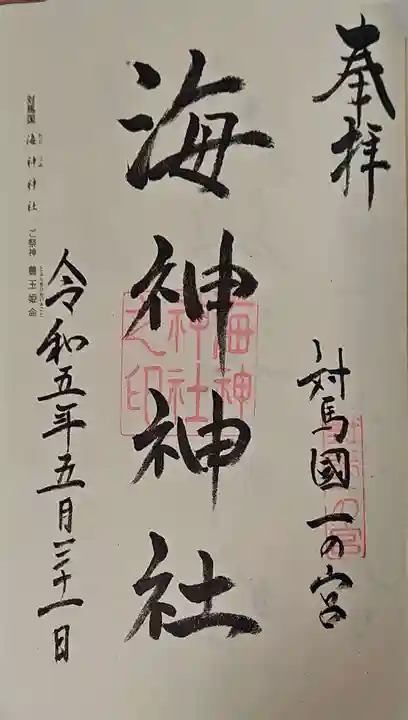 奉拝
対馬國一の宮
海神神社
海神
神社
之印
令和五年五月三十一日
対馬国 海神神社 ご祭神 豊玉姫命